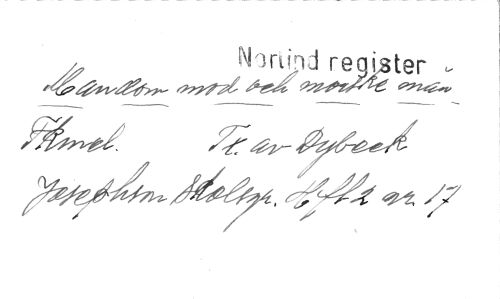 Nortind register
Mandom mod och morske män
Fkmel. Tx. av Dybeck
Josephson Skolsgr. Hft 2 nr. 17